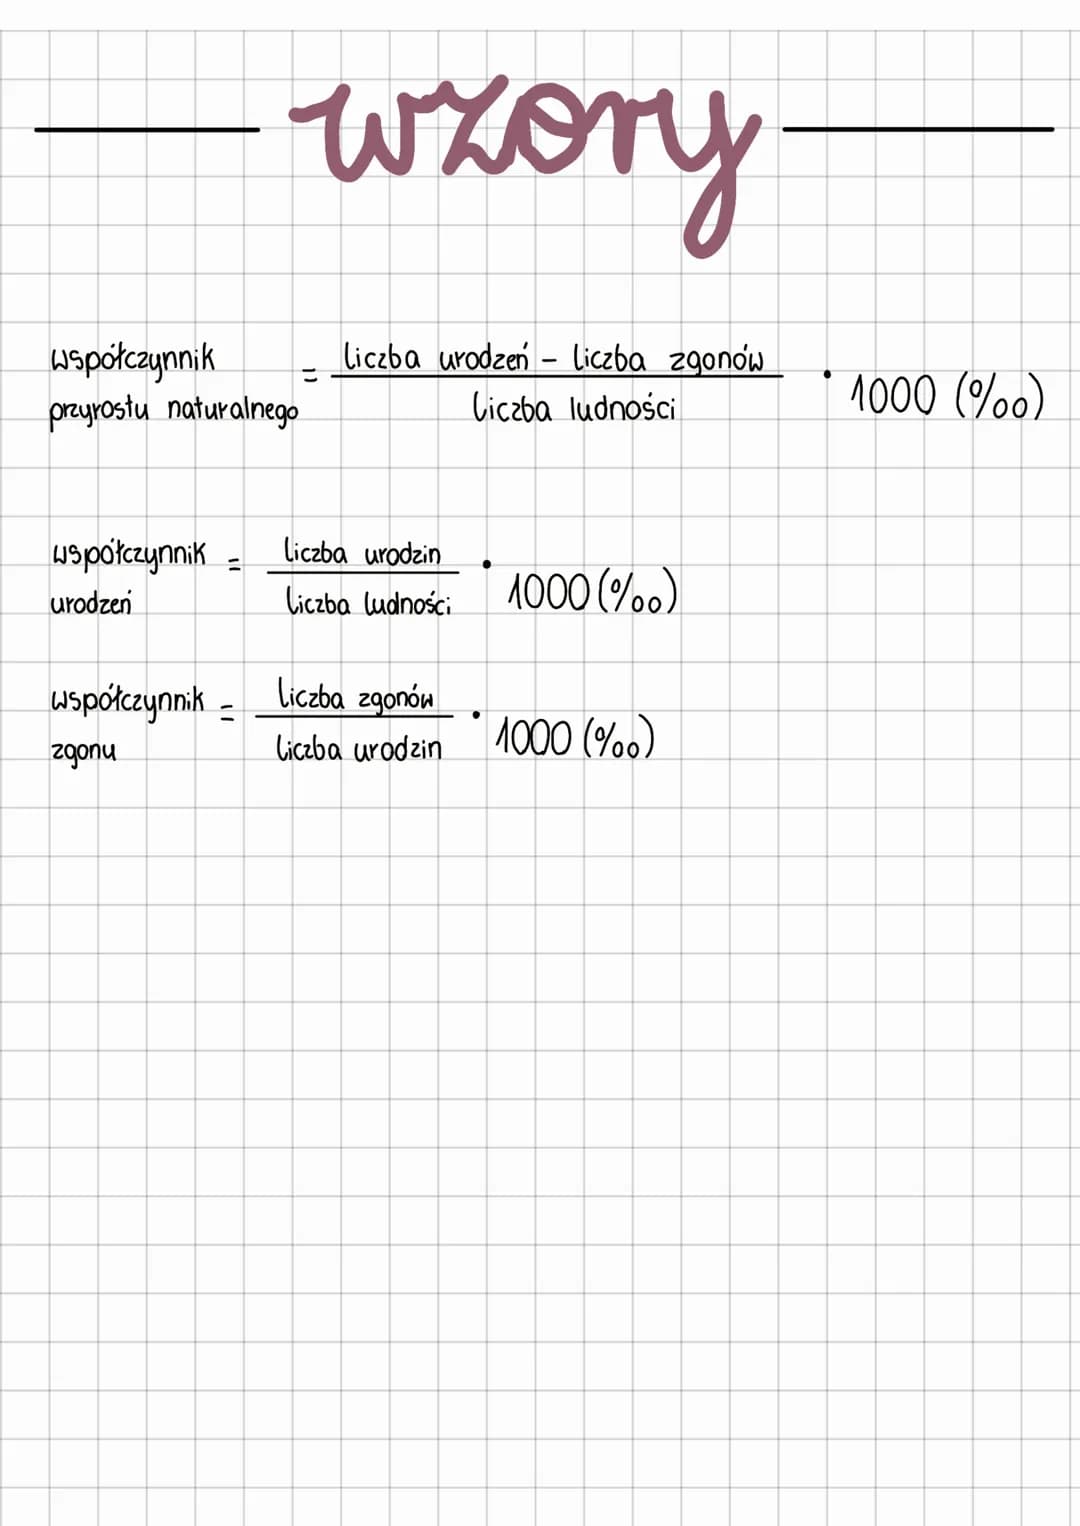 wzory
współczynnik przyrostu naturalnego = liczba urodzeń - liczba zgonów / liczba ludności · 1000 (‰)
współczynnik urodzeń = liczba urodzin / liczba ludności · 1000 (‰)
współczynnik zgonu = liczba zgonów / liczba urodzin · 1000 (‰)